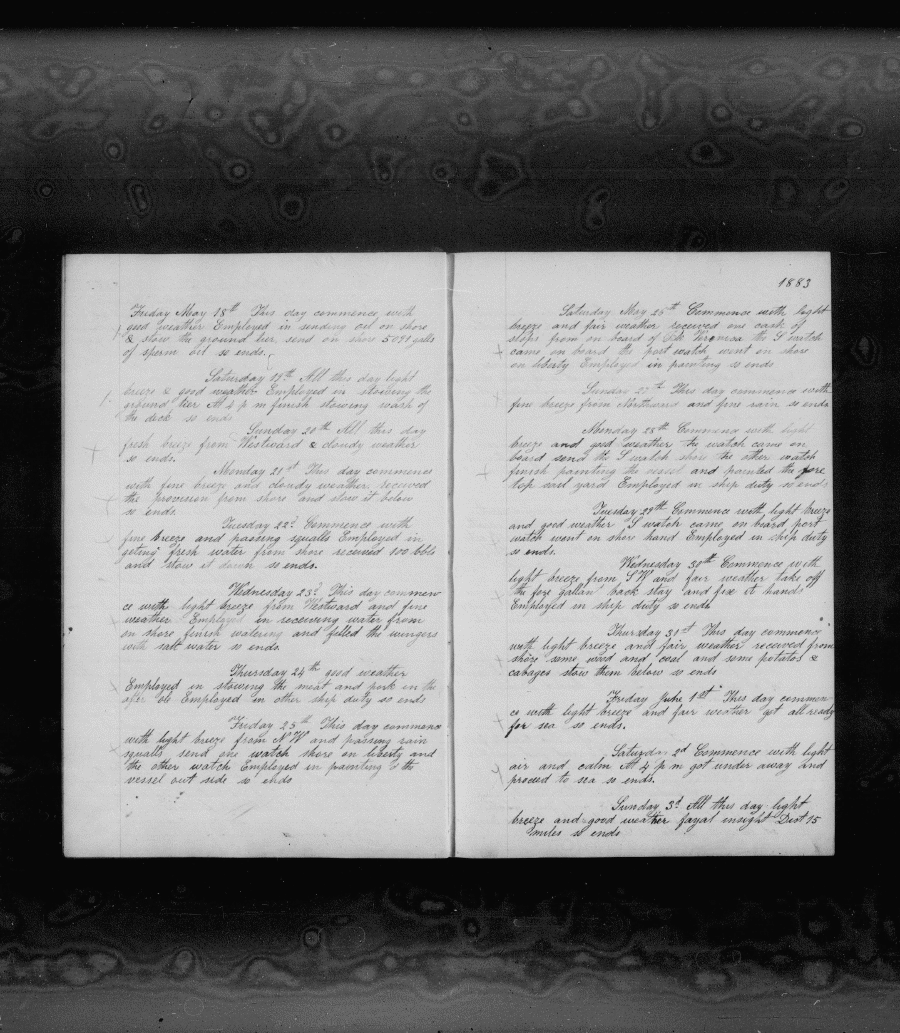 Friday May 18th This day commence with
good weather Employed in sending oil on shore
& stow the ground tier, send on shore 5099 galls
of sperm oil so ends.
Saturday 19th All this day light
breeze & good weather Employed in stowing the
ground tier At 4 p m finish stowing wash of
the deck so ends
Sunday 20th All this day
fresh breeze from Westward & cloudy weather
so ends.
Monday 21st This day commence
with fine breeze and cloudy weather, received
the provision from shore and stow it below
so ends.
Tuesday 22d Commence with
fine breeze and passing squalls Employed in
geting fresh water from shore received 100 bbls
and stow it down so ends.
Wednesday 23d This day commen
ce with light breeze from Westward and fine
weather Employed in receiving water from
on shore finish watering and filled the wingers
with salt water so ends.
Thursday 24th good weather
Employed in stowing the meat and pork in the
after Employed in other ship duty so ends
Friday 25th This day commence
with light breeze from N W and passing rain
squalls send one watch shore on liberty and
the other watch Employed in painting the
vessel out side so ends
1883
Saturday May 26th Commence with light
breeze and fair weather received one cask of
slops from on board of the S watch
came on board the port watch went on shore
on liberty Employed in painting so ends
Sunday 27th This day commence with
fine breeze from Northward and fine rain so ends
Monday 28th Commence with light
breeze and good weather the watch came on
board send the S watch shore the other watch
finish painting the vessel and painted the fore
top sail yard Employed in ship duty so ends
Tuesday 29th Commence with light breeze
and good weather S watch came on board port
watch went on shore hand Employed in ship duty
so ends.
Wednesday 30th Commence with
light breeze from S W and fair weather take off
the fore gallan back stay and fix it hands
Employed in ship duty so ends
Thursday 31st This day commence
with light breeze and fair weather received from
shore some wood and coal and some potatos &
cabages stow them below so ends
Friday June 1st This day commen
ce with light breeze and fair weather got all ready
for sea so ends.
Saturday 2d Commence with light
air and calm At 4 p m got under away and
proceed to sea so ends.
Sunday 3d All this day light
breeze and good weather fayal insight Dist 15
miles so ends